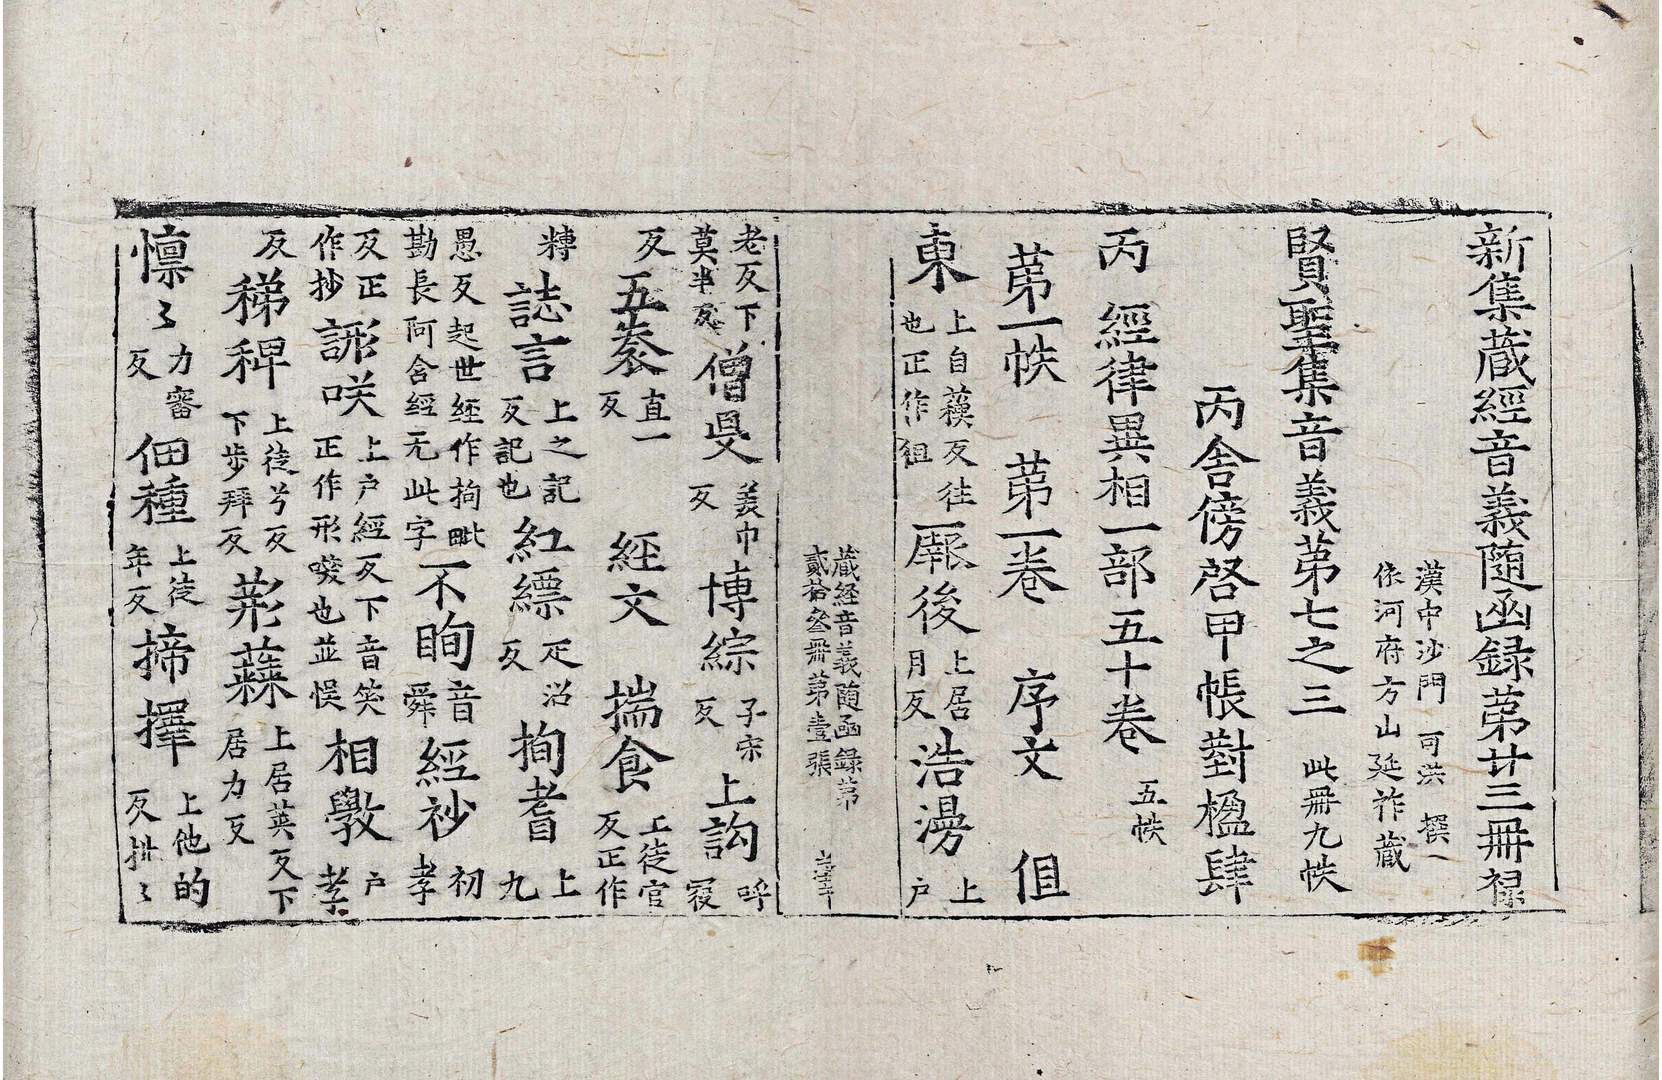 新集藏經音義隨函録第廿三冊祿
漢中沙門 可洪 撰
依河府方山延祚藏
賢聖集音義第七之三 此冊九帙
丙舍傍啓甲帳對楹肆
丙 經律異相一部五十卷 五帙
第一帙 第一卷 序文 伹
東 上自䕶反往也正作徂 厩後 上居月反 浩漫 上户
藏経音義随函録第
貳拾叄冊第壹張
老反下莫半反 僧旻 美巾反 博綜 子宋反 上訽 呼寇
反 五袠 直一反 経文 揣食 上徒官反正作
䊜 誌言 上之記反記也 紅縹 疋沼反 拘耆 上九
愚反起世経作拘毗勘長阿含經无此字 不眴 音舜 經抄 初孝
反正作抄 𧦬咲 上户經反下音笑正作形㗛也並悮 相斅 户孝
反 稊稗 上徒兮反下步拜反 𦽊蘓 上居英反下居力反
懍〻 力審反 佃種 上徒年反 揥擇 上他的反排〻